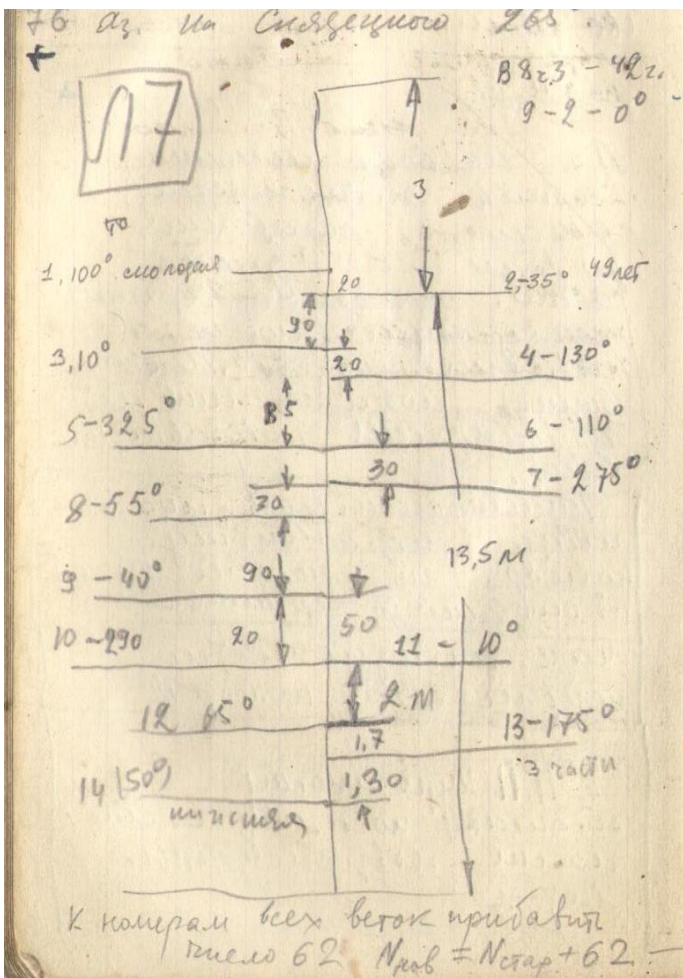 76 аз. на Снядецкого 265°
В 8 ч, 3 - 42 г.
9 - 2 - 0°
Л7
3
1, 100° смолодая
20
2,-35° 49 лет
90
3, 10°
20
4 - 130°
85
5 - 325°
6 - 110°
30
7 - 275°
8 - 55°
30
13,5 м
9 - 40°
90
50
10 - 290
20
11 - 10°
2 м
12 65°
13 - 175°
1,7
3 части
14 (50°)
1,30
нижняя
К номерам всех веток прибавить
число 62 Nнов = Nстар + 62 —